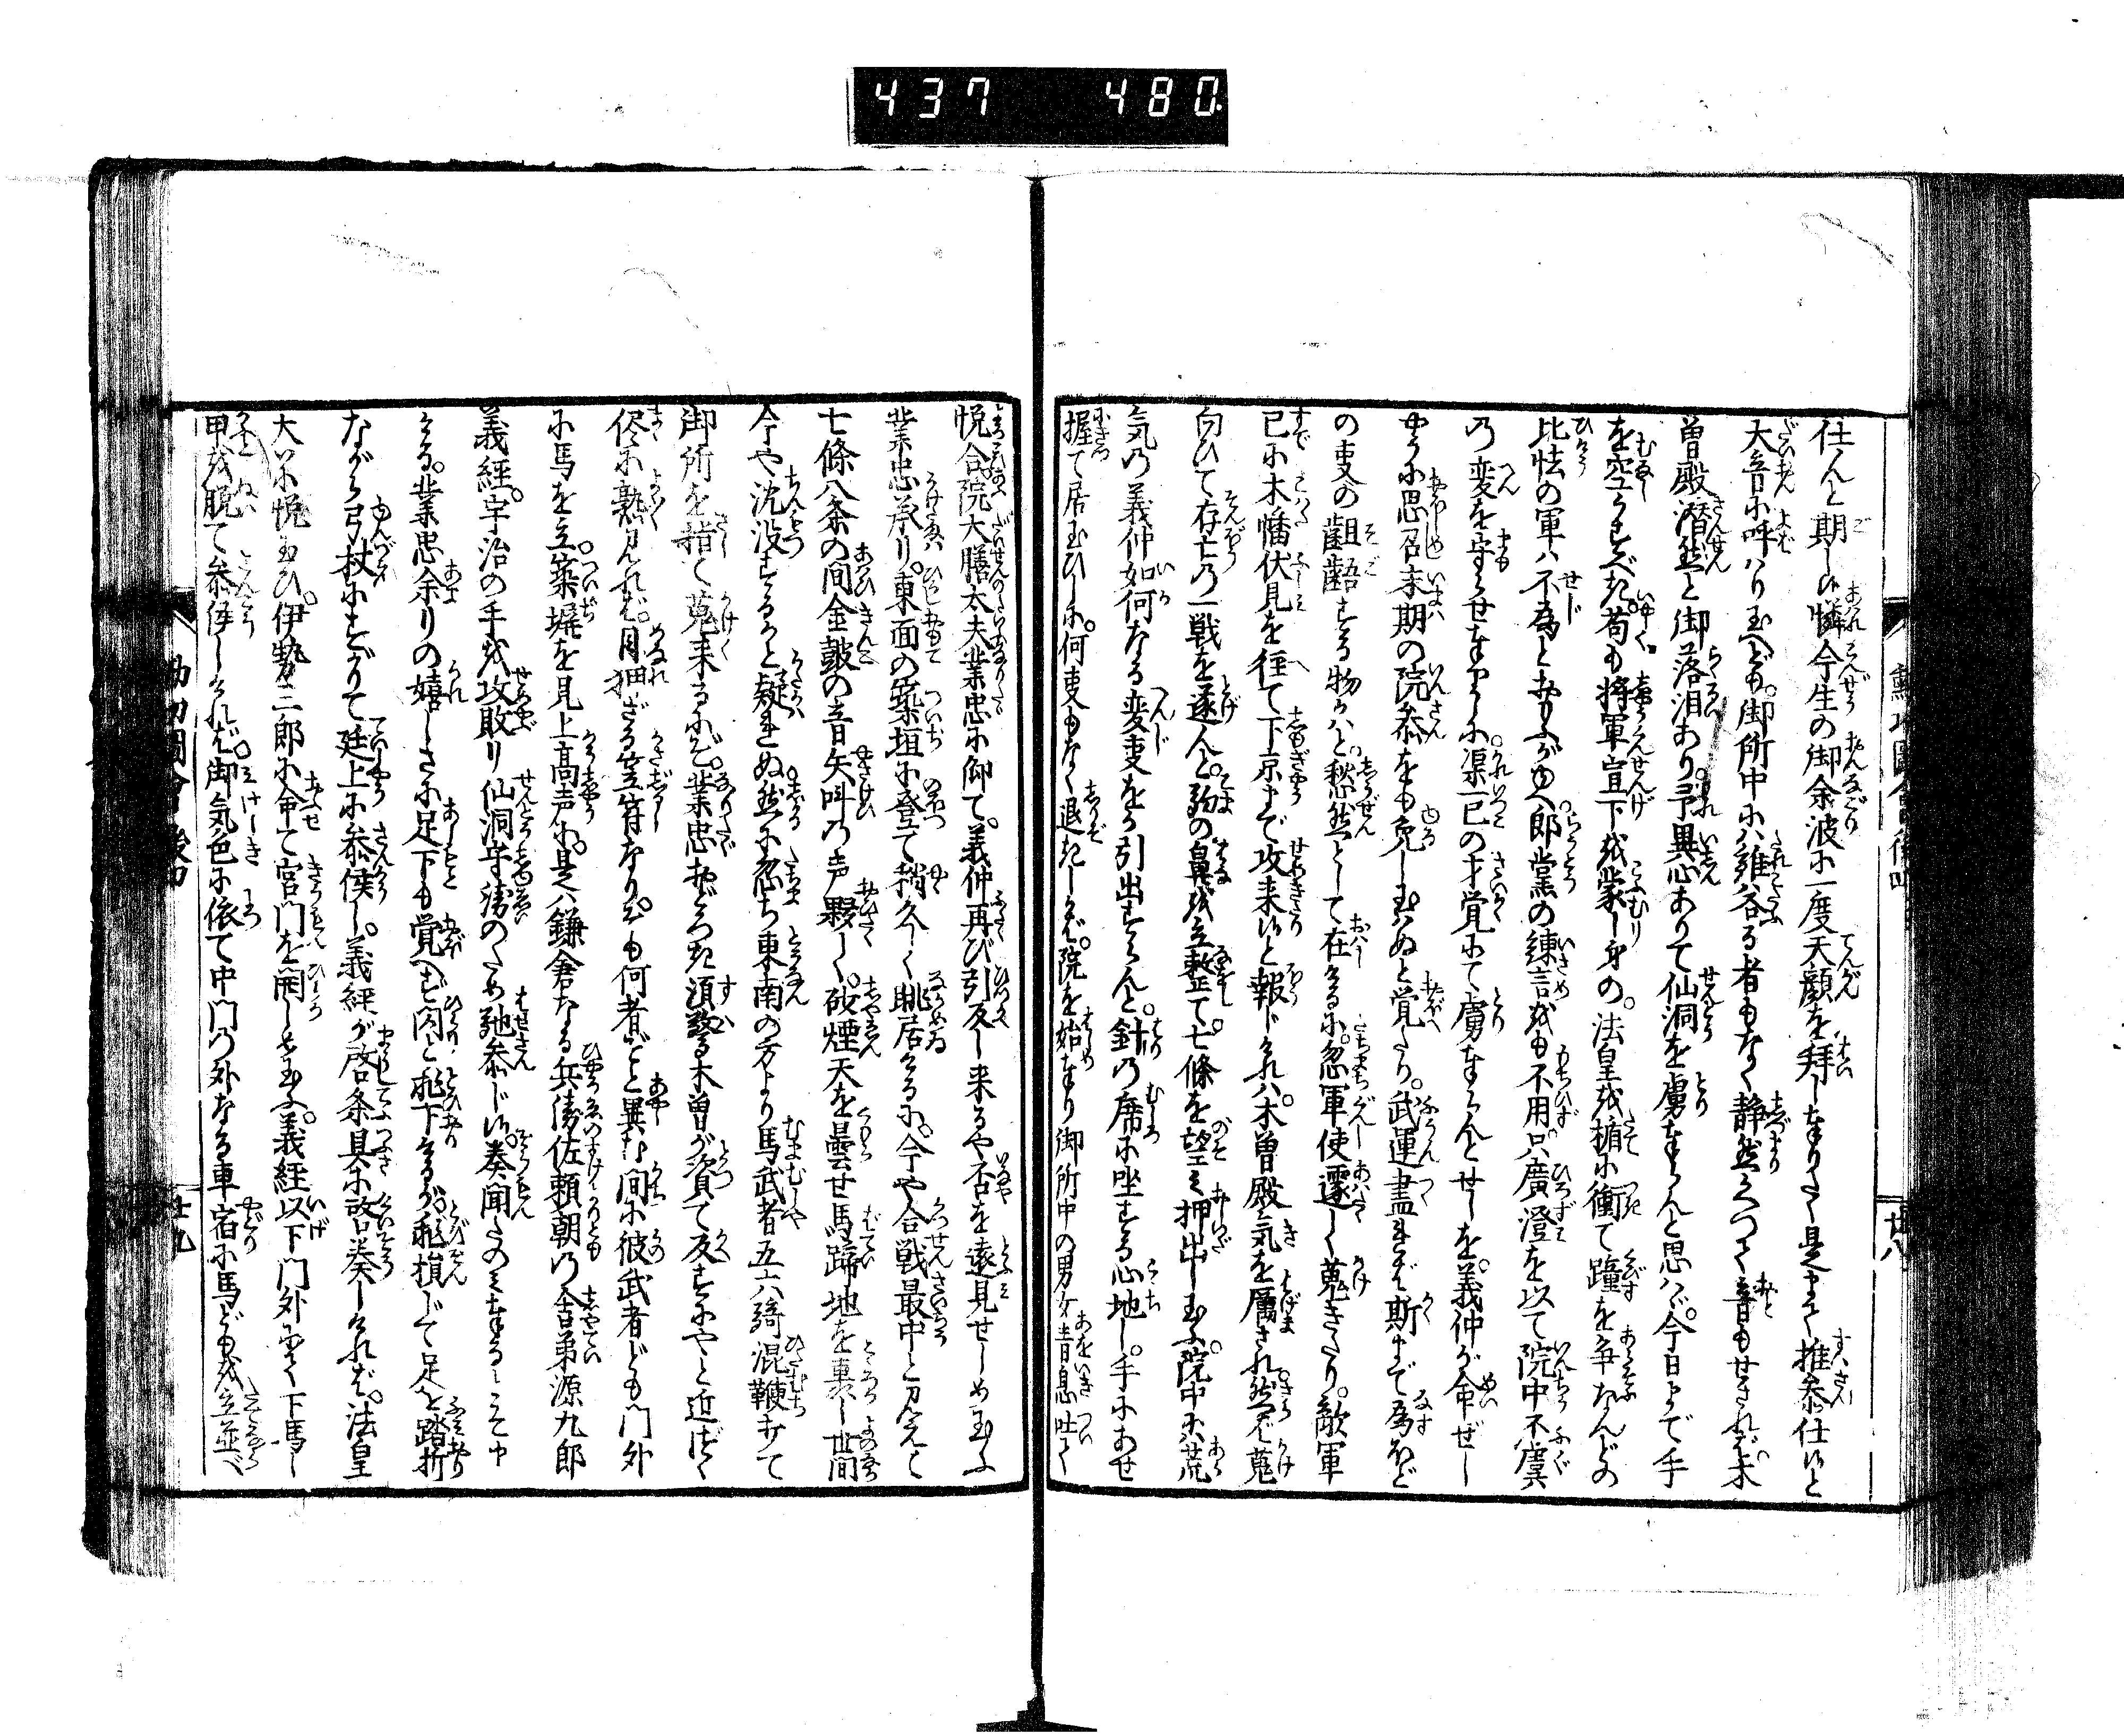 437 480
仕んと期し候憐今生の御余波に一度天顔を拝し奉りたく是まで推参仕候と
大音に呼はり玉へども。御所中には誰答る者もなく静然かへつて音もせざれば木
曽殿潜然と御落泪あり。予異心ありて仙洞を虜奉らんと思はゞ。今日まで手
を空うすべき。苟も将軍宣下を蒙し身の。法皇を楯に衝て踵を争なんどの
比怯の軍は不為とおもふがゆへ。郎党の練言をも不用。只廣澄を以て院中不虞
の変を守らせ奉りしに。渠一己の才覚にて虜奉らんとせしを。義仲が命ぜし
やうに思召末期の院参をも免し玉はぬと覚たり。武運尽ぬれば斯まで為ほど
の事の齟齬する物かはと。愁然として在けるに。忽軍使遽しく駈きたり。敵軍
已に木幡伏見を径て下京まで攻来候と報じければ。木曽殿気を厲され然ば駈
向ひて存亡の一戦を遂んと。駒の鼻を立整て。七條を望み押出し玉ふ。院中に荒
気の義仲如何なる変事をか引出すらんと。針の席に坐する心地し。手にあせ
握て居玉ひしに。何事もなく退きしかば。院を始奉り御所中の男女青息吐て
廿八
悦合院大膳太夫業忠に仰て。義仲再び引反し来るや否を遠見せしめ玉ふ
業忠承り。東面の築垣に登て稍久しく眺居けるに。今や合戦最中と見えて
七條八条の間金鼓の音矢叫の声夥しく。砂煙天を曇せ馬蹄地を裏し世間
今や沈没するかと疑れぬ。然に忽ち東南の方より馬武者五六騎混鞭打て
御所を指て駈来るれば。業忠おどろき須破木曽が資て反すにやと近づく
侭に熟見れば。目狃ざる笠符なり。抑も何者ぞと異む間に彼武者ども門外
に馬を立。築塀を見上高声に。是は鎌倉なる兵衛佐頼朝の舎弟源九郎
義経。宇治の手を攻敗り仙洞守護のため馳参じ候。奏聞たのみ奉るとこそ申
ける。業忠余りの嬉しさに足下も覚へず内と飛下けるが。飛損じて足を踏折
ながら弓杖にすがりて廷上に参候し。義経が啓条具に改奏しければ。法皇
大いに悦玉ひ。伊勢三郎に命て宮門を開しめ玉ふ。義経以下門外にて下馬し
甲を脱て参伺しければ。御気色に依て中門の外なる車宿に馬どもを立並べ
廿九